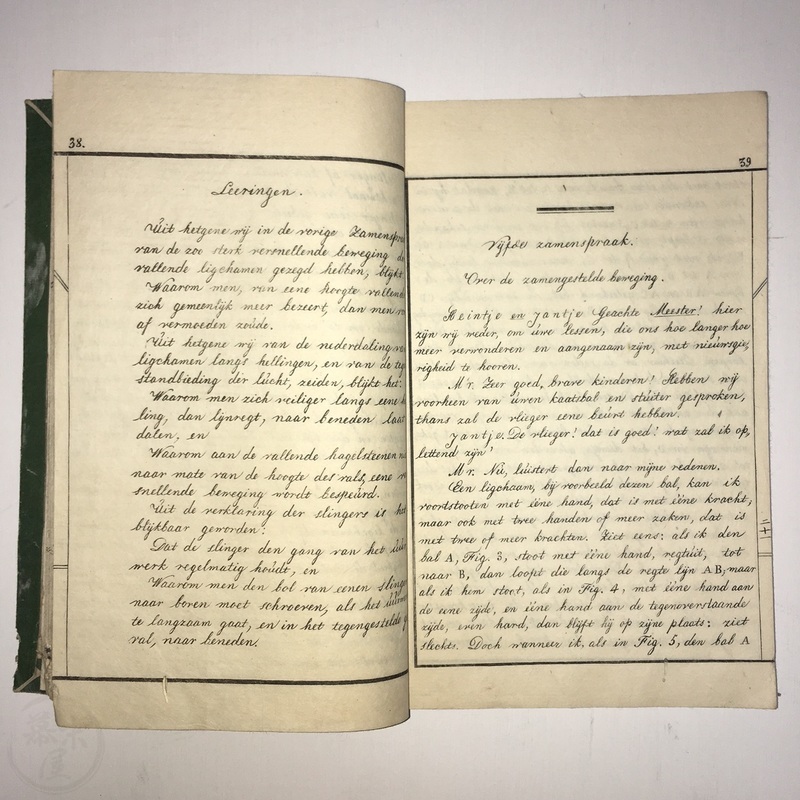 38.
Leeringen.
Uit hetgene wij in de vorige
van de zoo sterk versnellende beweging
vallende ligchamen gezegd hebben, blijkt
Waarom men, van eene hoogte
zich gemeenlijk meer bezeert, dan men
af vermoeden zoúde.
Uit hetgene wij van de nederdaling
ligchamen langs hellingen, en van de
standbieding der lúcht, zeiden, blijkt het:
Waarom men zich veiliger langs eene
ling, dan lijnregt, naar beneden laat
dalen, en
Waarom aan de vallende hagelsteenen
naar mate van de hoogte des vals, eene
snellende beweging wordt bespeúrd.
Uit de verklaring der slingers is het
blijkbaar geworden:
Dat de slinger den gang van het
werk regelmatig houdt, en
Waarom men den bol van eenen
naar boven moet schroeven, als het
te langzaam gaat, en in het tegengestelde
val, naar beneden.
39
Vijfde zamenspraak.
Over de zamengestelde beweging.
Heintje en Jantje Geachte Meester! hier
zijn wij weder, om úwe lessen, die ons hoe langer hoe
meer verwonderen en aangenaam zijn, met nieúwsgie,
righeid te hooren.
Mr. Zeer goed, brave kinderen! Hebben wij
voorheen van úwen kaatsbal en stúiter gesproken,
thans zal de vlieger eene beúrt hebben.
Jantje. De vlieger! dat is goed! wat zal ik op,
lettend zijn!
Mr. Nú, lúistert dan naar mijne redenen.
Een ligchaam, bij voorbeeld dezen bal, kan ik
voortstooten met ééne hand, dat is met ééne kracht,
maar ook met twee handen of meer zaken, dat is
met twee of meer krachten. Ziet eens: als ik den
bal A, Fig. 3, stoot met ééne hand, regtúit, tot
naar B, dan loopt die langs de regte lijn AB; maar
als ik hem stoot, als in Fig. 4, met ééne hand aan
de eene zijde, en ééne hand aan de tegenoverstaande
zijde, even hard, dan blijft hij op zijne plaats: ziet
slechts. Doch wanneer ik, als in Fig. 5, den bal A